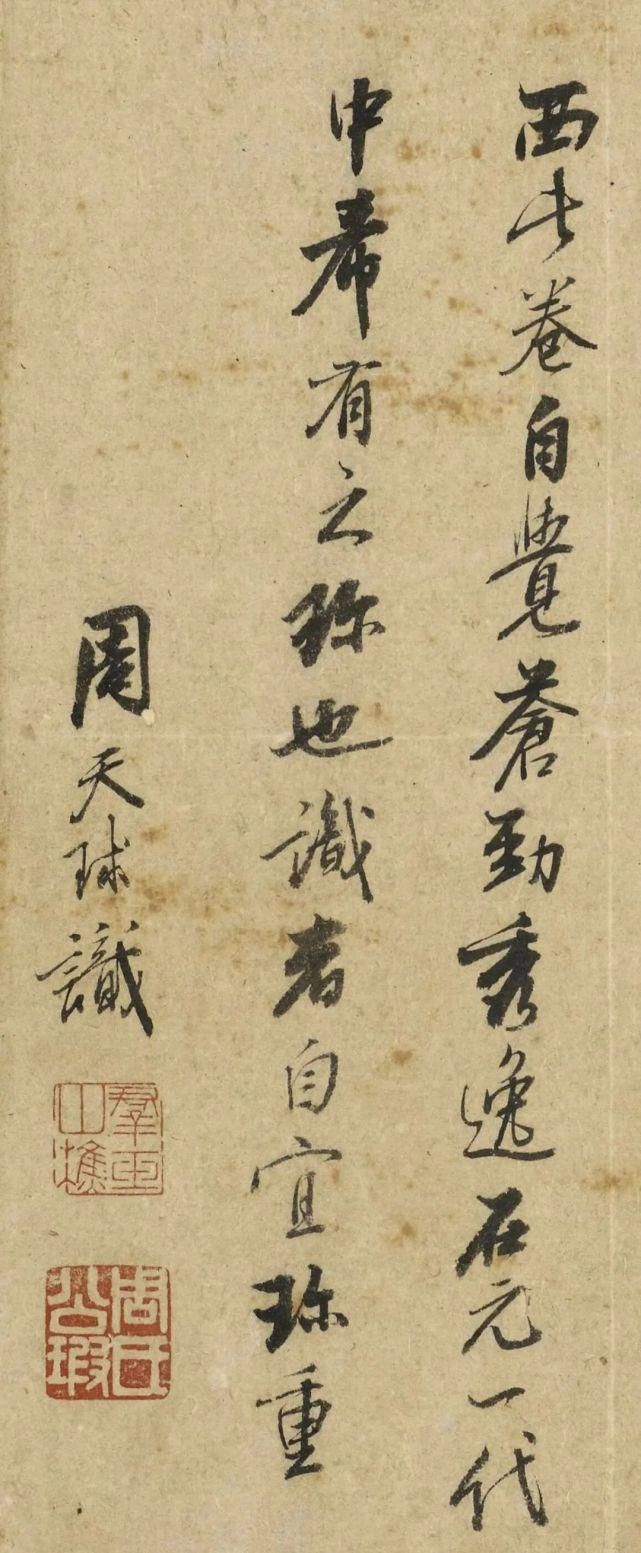 西此卷自覺蒼勁秀逸在元一代
中希有之珎也識者自宜珎重
周天球識
羣玉山樵
周氏公瑕